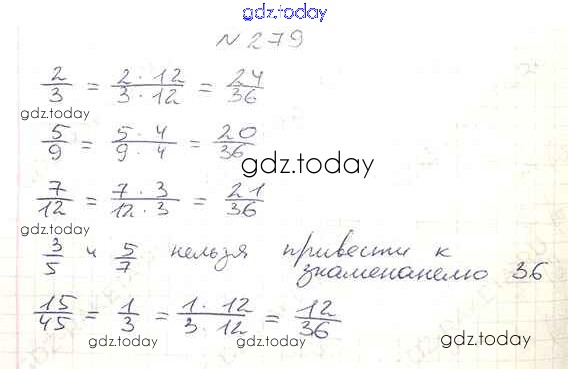 gdz.today
№279
2/3 = 2·12/3·12 = 24/36
gdz.today
5/9 = 5·4/9·4 = 20/36
gdz.today
7/12 = 7·3/12·3 = 21/36
gdz.today
3/5 и 5/7 нельзя привести к
знаменателю 36
15/45 = 1/3 = 1·12/3·12 = 12/36
gdz.today gdz.today gdz.today